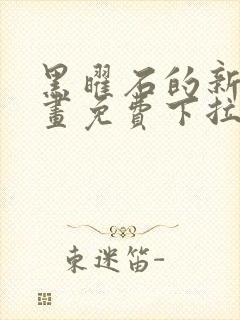 黑曜石的新
畫免費下拉
東迷笛-